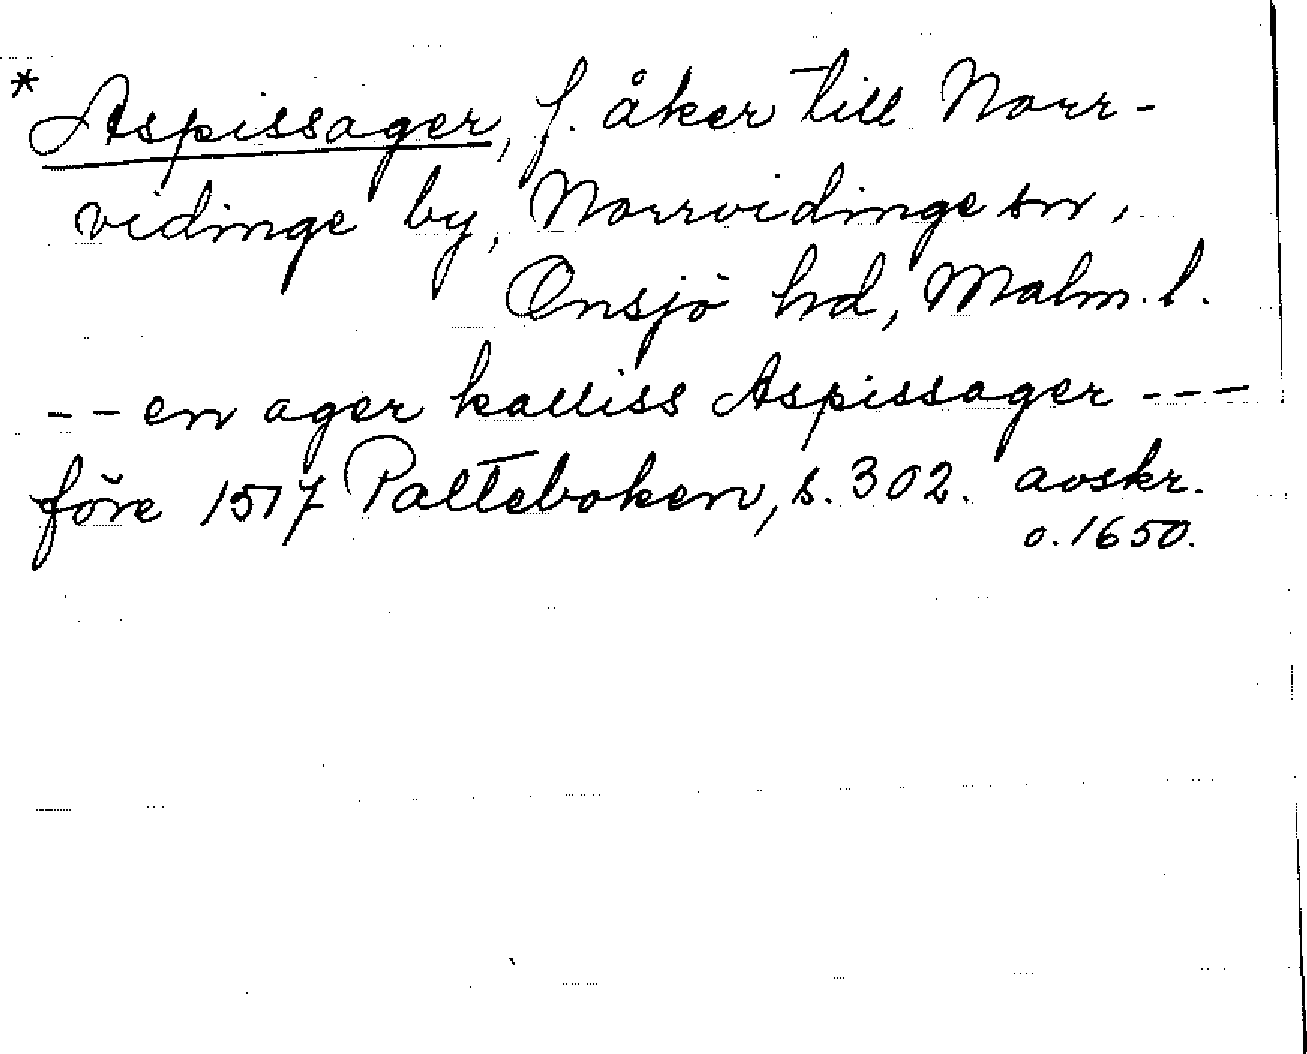 * Aspissager, f. åker till Norr-
vidinge by, Norrvidinge sn,
Onsjö hd, Malm. l.
-- en ager kalliss Aspissager ---
före 1517 Palteboken, s. 302. avskr.
o. 1650.